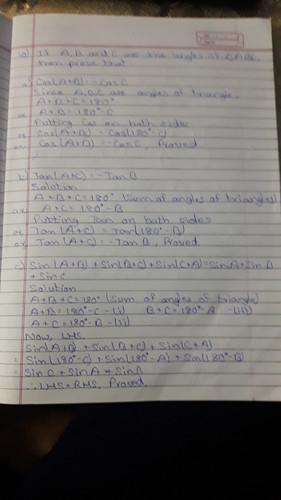 10) If A, B and C are the angles of
then prove that
a) Cos(A+B) = -Cos C
Since A, B, C are angles of triangle,
A+B+C = 180°
or A+B = 180°-C
Putting Cos on both sides
or Cos(A+B) = Cos(180°-C)
or Cos(A+B) = -Cos C, Proved.
b) Tan(A+C) = -Tan B
Solution
A+B+C = 180° (sum of angles of triangles)
or A+C = 180°-B
Putting Tan on both sides
or Tan(A+C) = Tan(180°-B)
or, Tan(A+C) = -Tan B, Proved.
c) Sin(A+B) + Sin(B+C) + Sin(C+A) = Sin A + Sin B
+ Sin C
Solution
A+B+C = 180° (Sum of angles of triangle)
A+B = 180°-C -(i) B+C = 180°-A -(ii)
A+C = 180°-B -(iii)
Now, LHS,
Sin(A+B) + Sin(B+C) + Sin(C+A)
= Sin(180°-C) + Sin(180°-A) + Sin(180°-B)
= Sin C + Sin A + Sin B
∴ LHS = RHS, Proved